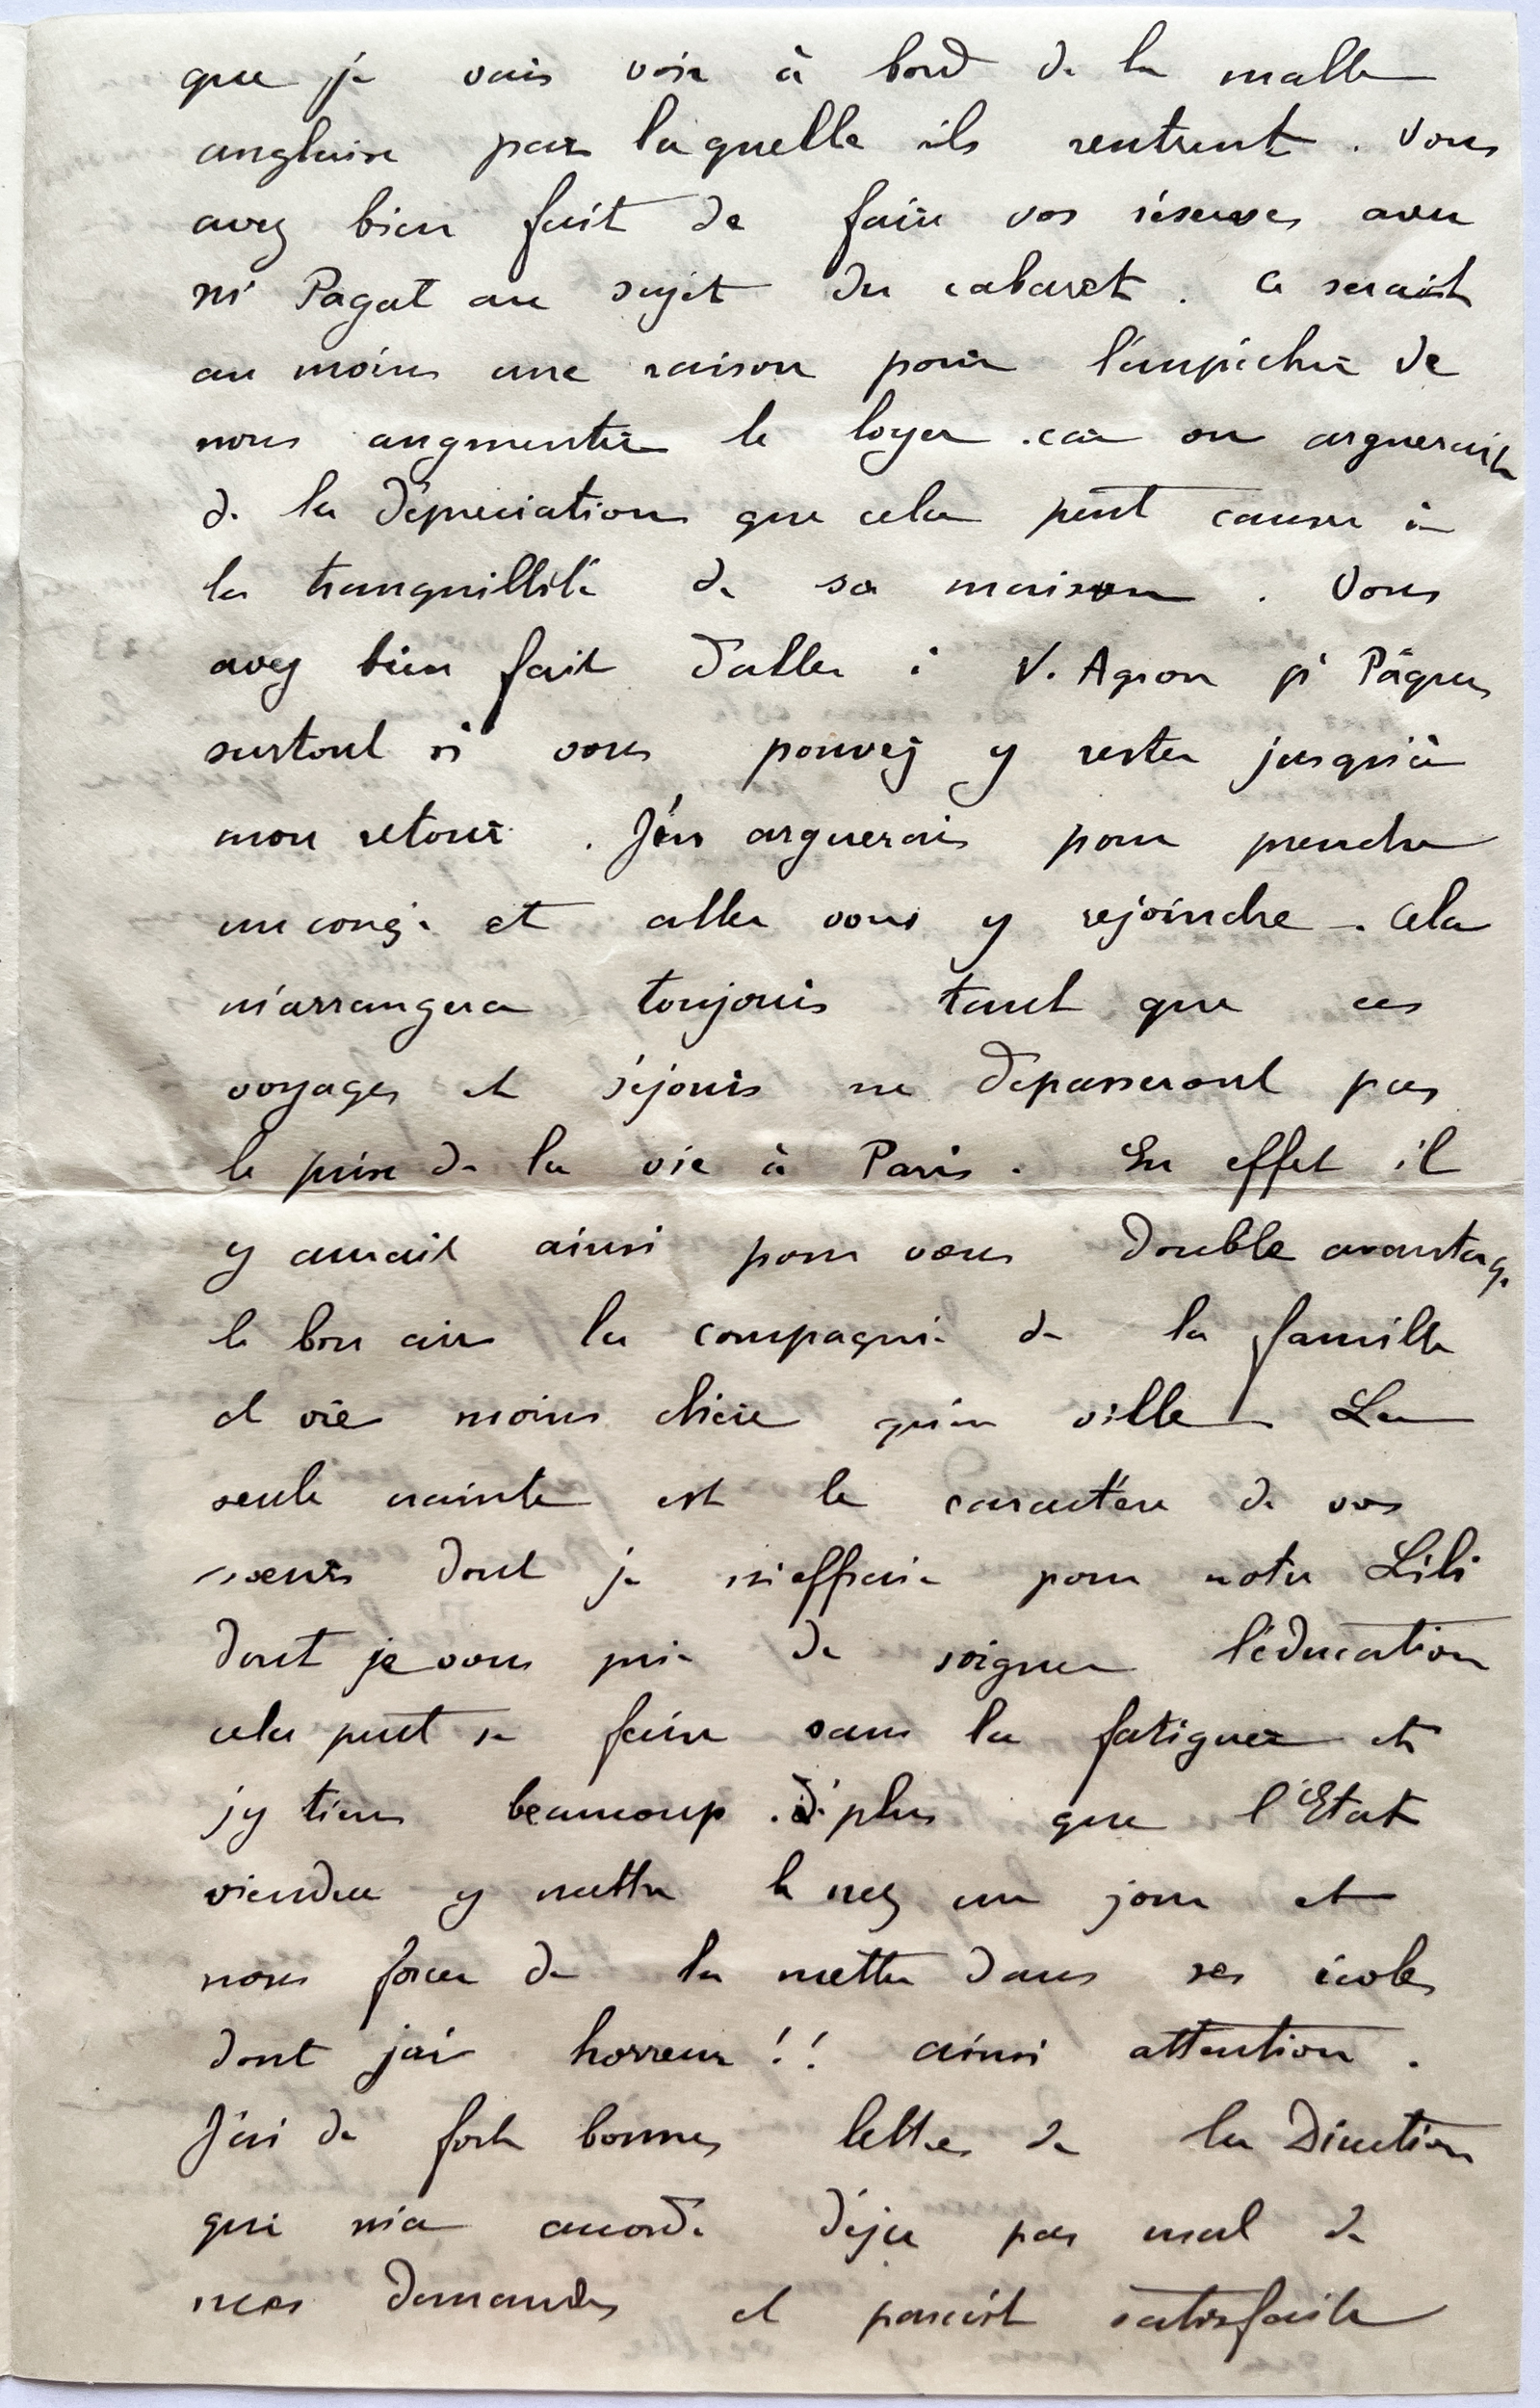 que je vais voir à bord de la malle
anglaise par laquelle ils rentrent. Vous
avez bien fait de faire vos réserves avec
Mr Pagat au sujet du cabaret. Ce serait
au moins une raison pour l'empêcher de
nous augmenter le loyer. car on arguerait
de la dépréciation que cela peut causer à
la tranquillité de sa maison. Vous
avez bien fait d'aller à V. Agron pr Pâques
surtout si vous pouvez y rester jusqu'à
mon retour. J'en arguerais pour prendre
un congé et aller vous y rejoindre. Cela
m'arrangera toujours tant que ces
voyages et séjours ne dépasseront pas
le prix de la vie à Paris. En effet il
y aurait ainsi pour vous double avantage
le bon air la compagnie de la famille
et vie moins chère qu'en ville. La
seule crainte est le caractère de vos
soeurs dont je m'effraie pour notre Lili
dont je vous prie de soigner l'éducation
cela peut se faire sans la fatiguer et
j'y tiens beaucoup. d' plus que l'Etat
viendra y mettre le nez un jour et
nous forcer de la mettre dans ses écoles
dont j'ai horreur!! ainsi attention.
J'ai de fort bonnes lettres de la Direction
qui m'a accordé déjà pas mal de
mes demandes et parait satisfaite